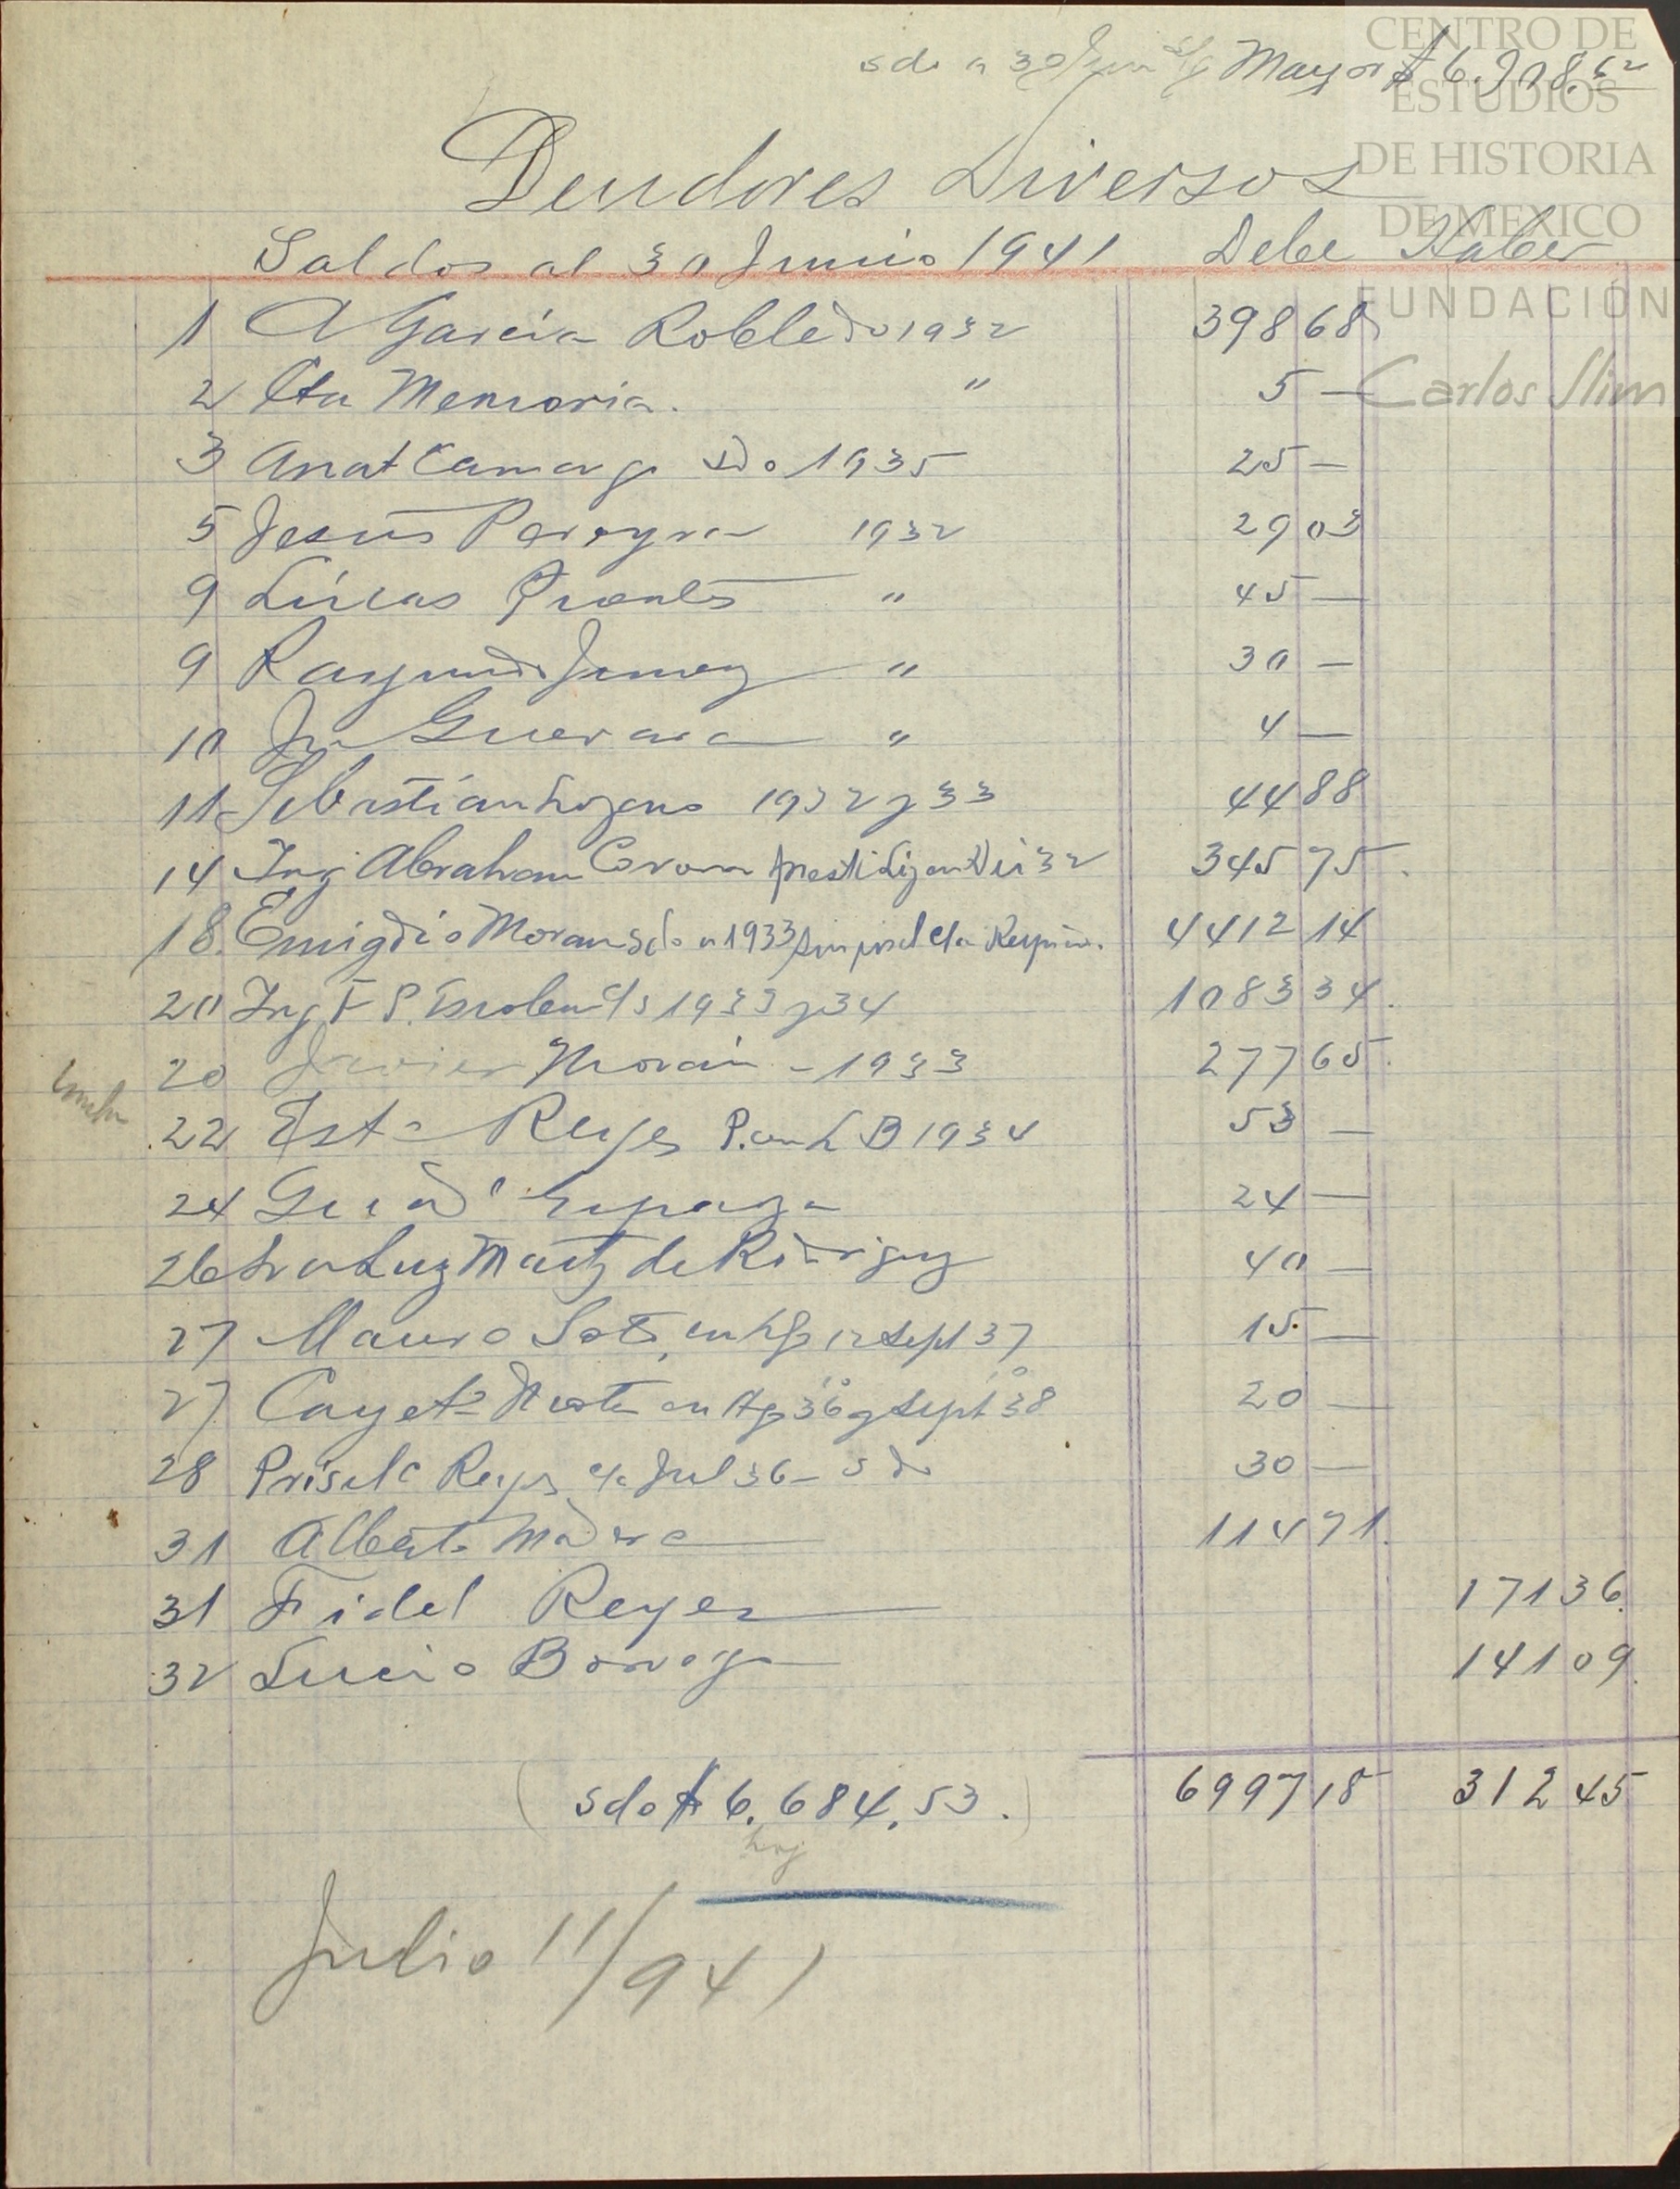 sdo a 30 Jun s/g Mayor $ 6.908.62
CENTRO DE
ESTUDIOS
DE HISTORIA
DE MEXICO
FUNDACIÓN
Carlos Slim
Deudores Diversos
Saldos al 30 Junio 1941 Debe Haber
1 A Garcia Robledo 1932 398 68
2 Cta Memoria. " 5 —
3 Anat Camargo sdo 1935 25 —
5 Jesús Pereyra 1932 29 03
9 Lucas Puente " 45 —
9 Raymundo Jimenez " 30 —
10 Jn Guevara " 4 —
11 Sebastian Lozano 1932 y 33 44 88
14 Ing Abraham Coron 32 345 75
18. Emigdio Moran sdo a 1933 4412 14
20 Ing F P. Escobar 1933 y 34 1083 34
20 Javier Morán - 1933 277 65
22 Est° Reyes P. en L B 1934 53 —
24 Guad° Esparza 24 —
26 Sra Luz Martz de Rodriguez 40 —
27 Mauro Soto, en 12 Sept 37 15 —
27 Cayet° en Ag 36 y Sept 38 20 —
28 Prisil° Reyes Jul 36 - sdo 30 —
31 Alberto Madera 114 71
31 Fidel Reyes 171 36
32 Lucio Borrego 141 09
6997 18 312 45
(sdo $ 6.684.53.)
Julio 11/941